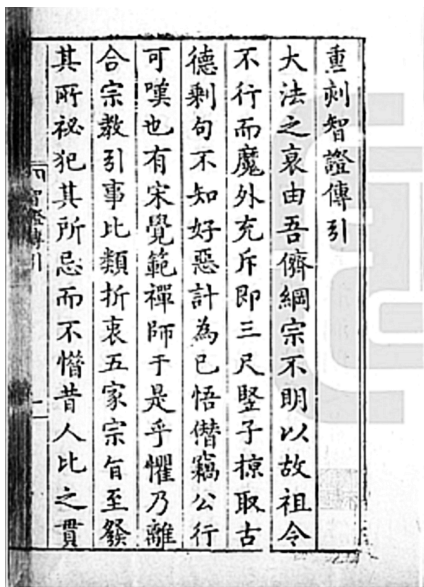 重刻智證傳引
大法之衰由吾儕綱宗不明以故祖令
不行而魔外充斥即三尺竪子掠取古
德剩句不知好惡計為已悟僭竊公行
可嘆也有宋覺範禪師于是乎懼乃離
合宗教引事比類折衷五家宗旨至發
其所祕犯其所忌而不惜昔人比之貫
智證傳引
一